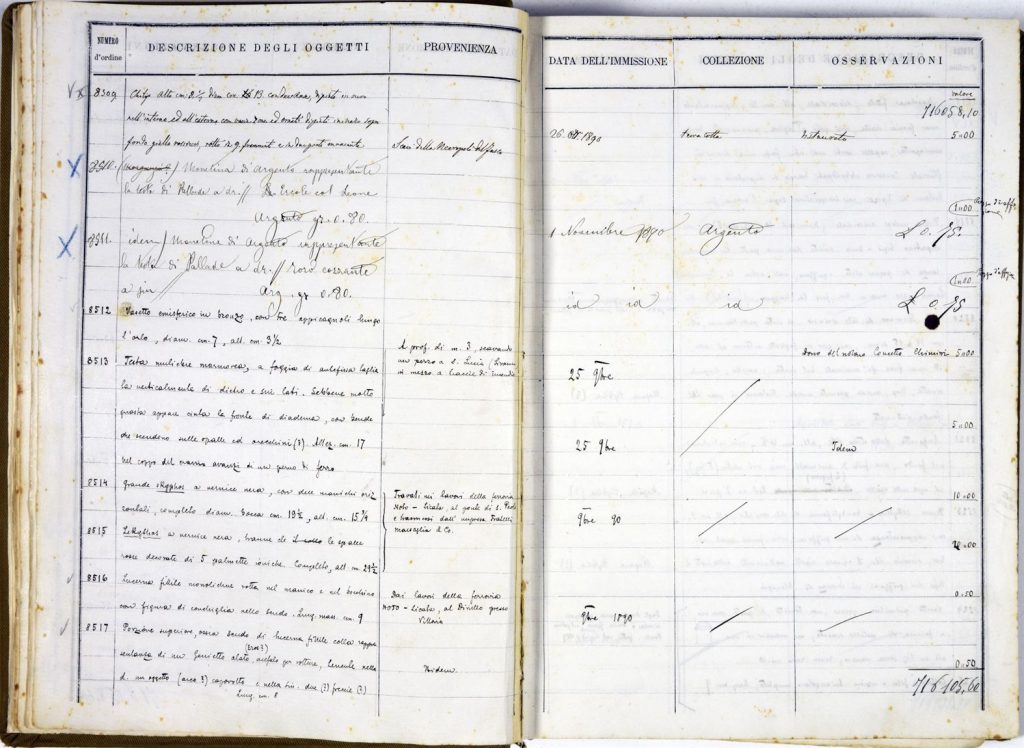 NUMERO d'ordine
DESCRIZIONE DEGLI OGGETTI
PROVENIENZA
8509
rotto in 9 frammenti e in due punti mancante
Scavi della Necropoli del Fusco
8510.
/ Monetina di Argento rappresentante
la testa di Pallade a dr. // Ercole col Leone
Argento gr. 0.80.
8511.
idem / Monetina di Argento rappresentante
la testa di Pallade a dr. // Toro cozzante
a Arg. gr 0.80.
8512
Vasetto emisferico in bronzo, con tre appicagnoli lungo
l'orlo, diam. cm. 7, alt. cm. 3½
A prof. di m. 3, scavando
un pozzo a S. Lucia
in mezzo a traccie di
8513
Testa muliebre marmorea, a foggia di antefissa taglia
ta verticalmente di dietro e sui lati. Sebbene molto
guasta appare cinta la fronte di diadema, con bende
che scendono sulle spalle ed orecchini (?). Altez. cm. 17
Nel coppo del cranio avanzi di un perno di ferro
8514
Grande skyphos a vernice nera, con due manichi oriz
zontali, completo diam. bocca cm. 19½, alt. cm. 15¾
Trovati nei lavori della ferrovia
Noto - Licata, al ponte di S. Paolo
e trasmessi dall'impresa Fratelli
Marsaglia & Co.
8515
Lekythos a vernice nera, tranne che le spalle
rosse decorate di 5 palmette ioniche. Completo, alt. cm 29½
8516
Lucerna fittile monolichne rotta nel manico e nel bocchino
con figura di conchiglia nello scudo. Lung. mass. cm. 9
Dai lavori della ferrovia
Noto - Licata, al Dirillo presso
Vittoria
8517
Porzione superiore, ossia scudo di lucerna fittile colla rappre
sentanza di un Genietto (Eros?) alato, acefalo per rottura, tenente nella
d. un oggetto (arco?) capovolto e nella sin. due (?) freccie (?)
Lung. cm. 8
Ibidem
DATA DELL'IMMISSIONE
COLLEZIONE
OSSERVAZIONI
valore
716058,10
26. Ott. 1890
terracotta
Restaurato
5=00
1=00
1 Novembre 1890
Argento
£ 0.75.
1=00
id id
id
£ 0.75
5=00
25 9bre
5=00
25 9bre
Idem
10=00
9bre 90
20=00
0=50
9bre 1890
0=50
716105,60